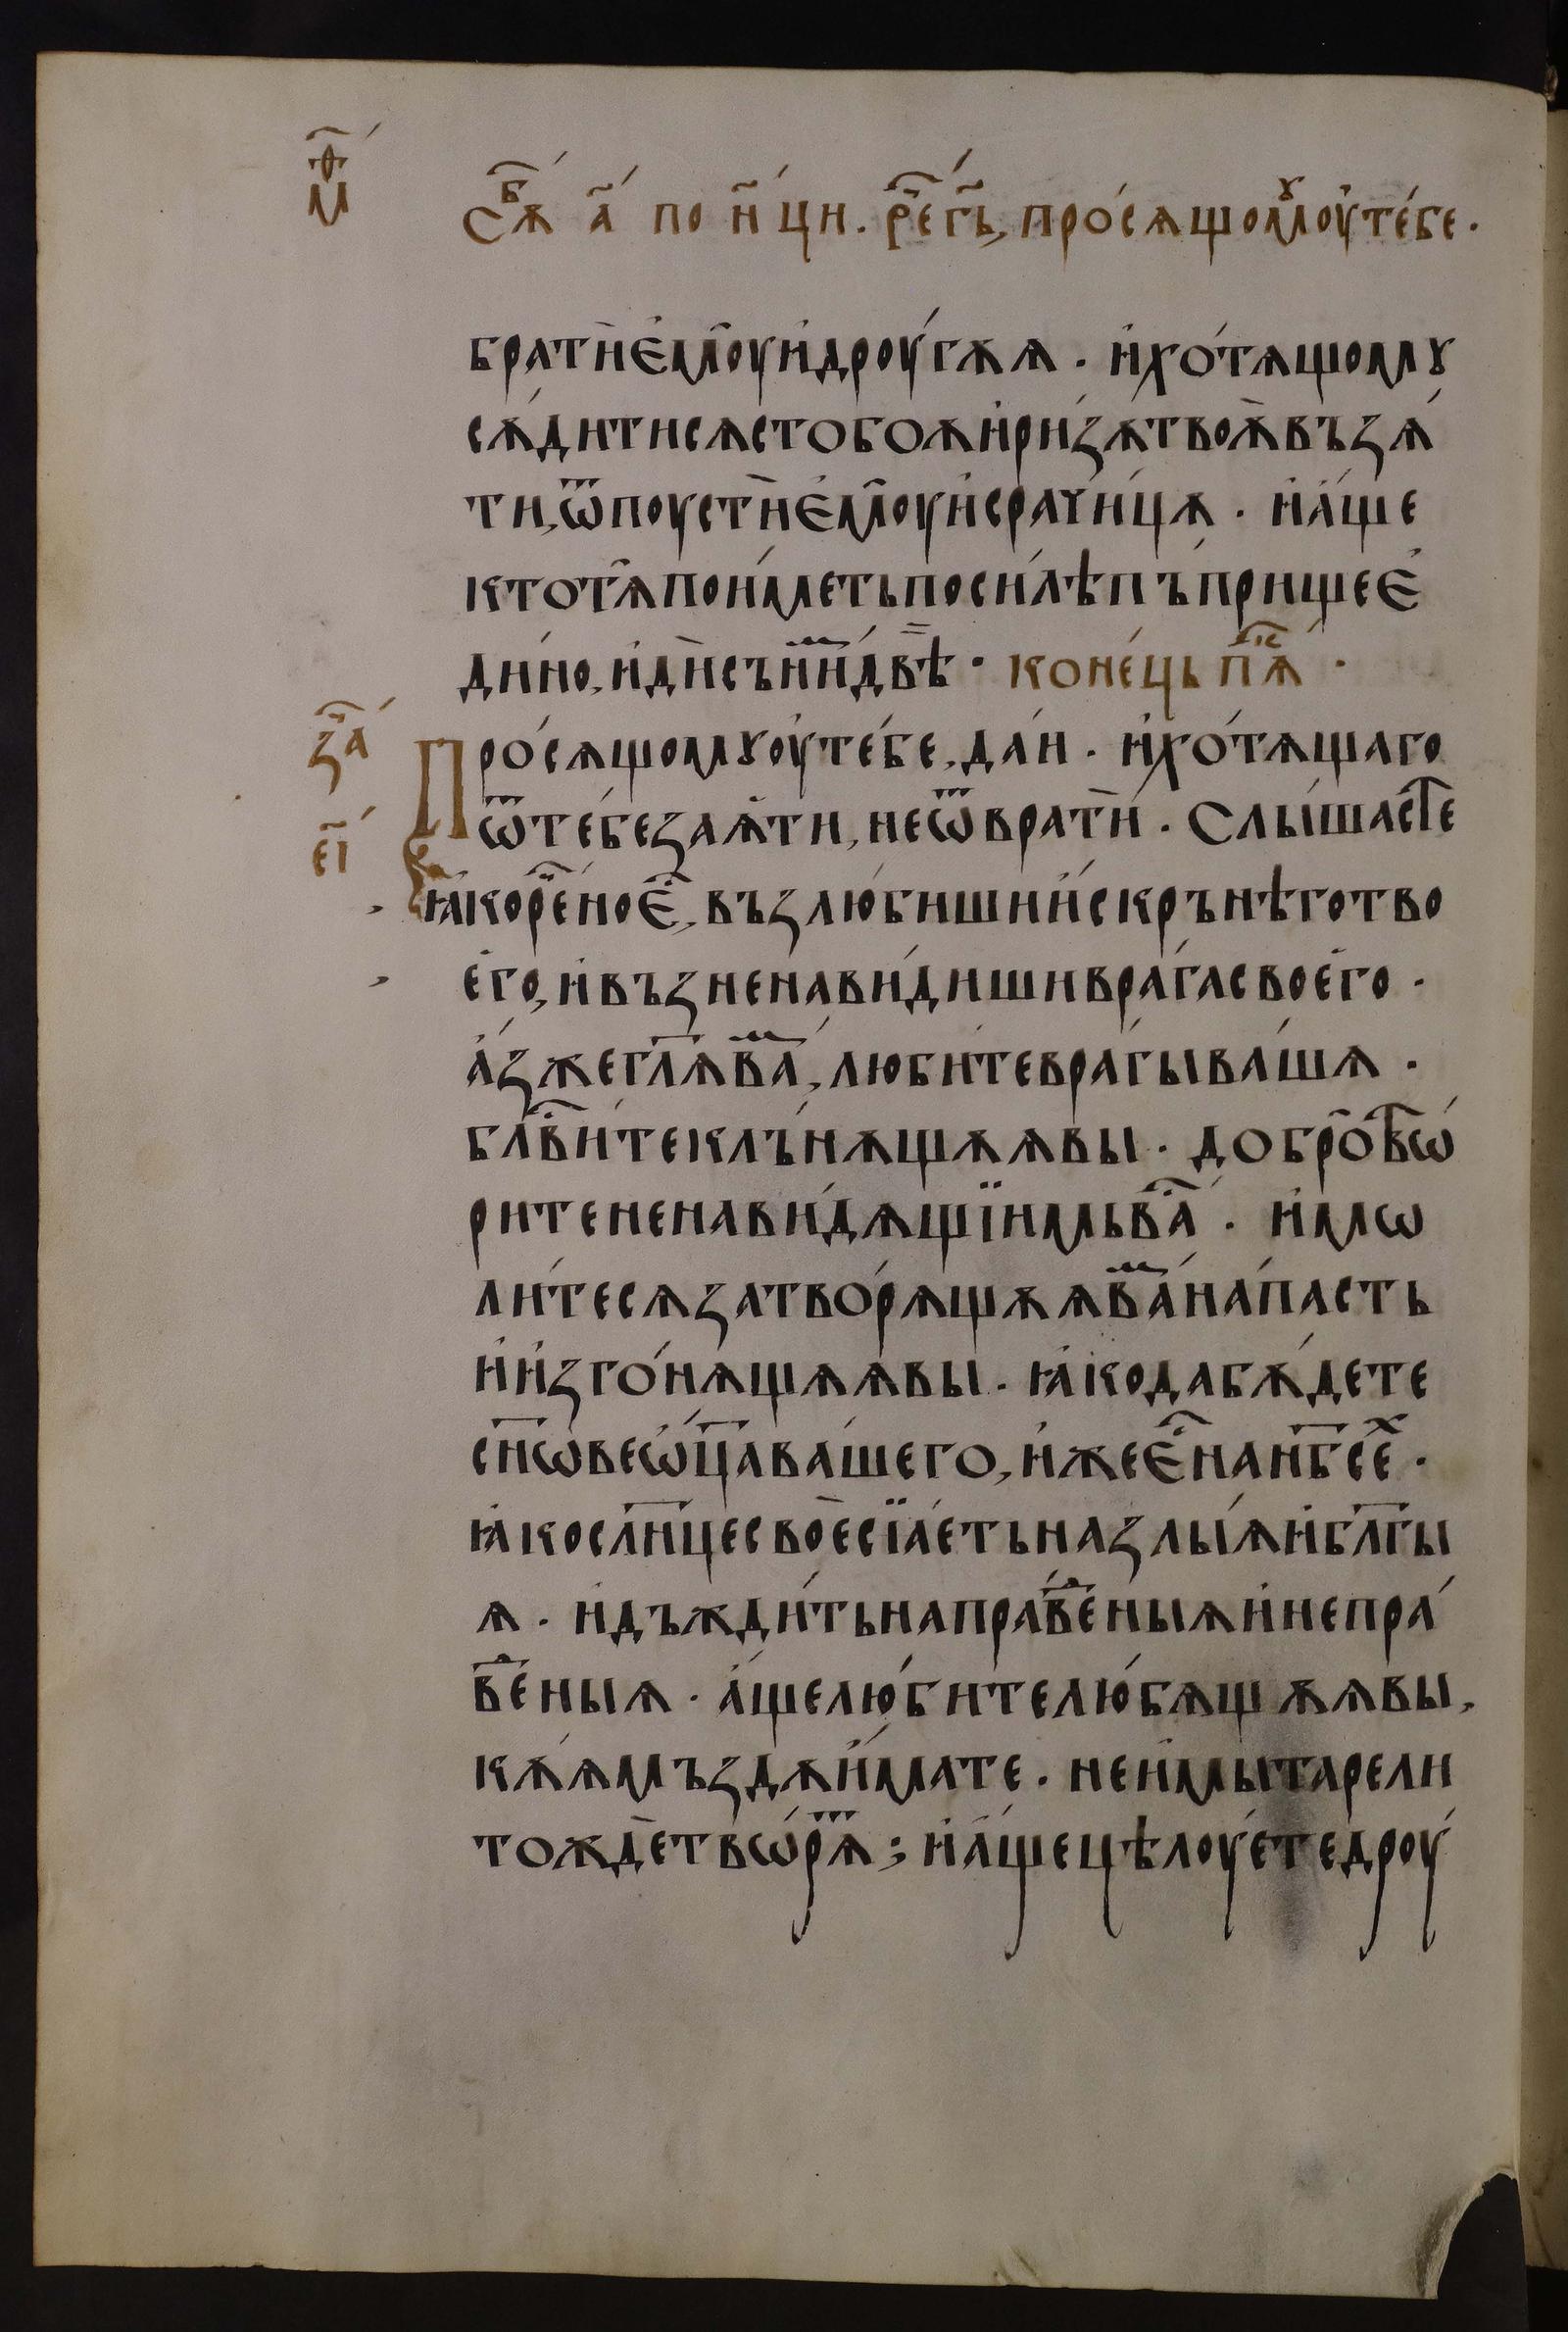 м҃ѳ
сѫ҃б а҃ по н҃ ци. р҃е г҃ь, про́сѧщомꙋоу҆те́бе.
братѝе҆моу̑и҆дроу́гѫѧ. и҆хо́тѧщомꙋ
сѫ́дитисѧстобоѫи҆ри́зѫтвоѫ̀въꙁѧ́
ти, ѿпоустѝе҆моу̑и҆срачи́цѫ. и҆а҆́ще
ктотѧ̑пои́метьпоси́лѣпъприщеѐ
ди́но, и҆дѝсъни҄мдвѣ̀. коне́ць пⷮѧ҇.
за҃
про́сѧщомꙋоу҆те́бе, да́и. и҆хо́тѧщаго
ѿте́беꙁаѧ́ти, неѿвратѝ. Слы́шастⷷе
еі҃
ꙗ҆кореⷱ҇ноѐ҇, въꙁлю́бишии҆́скрънѣготво
его̀, и҆въꙁненави́дишиврага̀своего̀.
а҆́ꙁжегл҃ѧва́ⷨ, люби́тевра́гыва́шѧ.
бл҃ви́теклъ́нѫщѫѧвы. добротⷪ҇вѡ́
ритененави́дѧщїимьва́ⷨ. и҆мѡ
ли́тесѧꙁатво́рѧщѫѧва́ⷨна́пасть
и҆и҆ꙁго́нѧщѫѧвы. ꙗ҆кодабѫ́дете
сн҃ѡвеѡ҆ц҃ава́шего, и҆́жеѐⷭ҇нан҃бсеⷯ.
ꙗ҆косл҃нцесвоѐсїа́етьнаꙁлы́ѧи҆бл҃гы
ѧ. и҆дъжди́тьнаправеⷣныѧи҆непра́
веⷣныѧ. а҆́щелю́бителю́бѧщѫѧвы,
кѫ́ѧмъꙁдѫи҆́мате. неи҆мы́тарели
тождѐтвѡ́рѧⷮ; и҆а҆́щецѣлоу́етедроу́